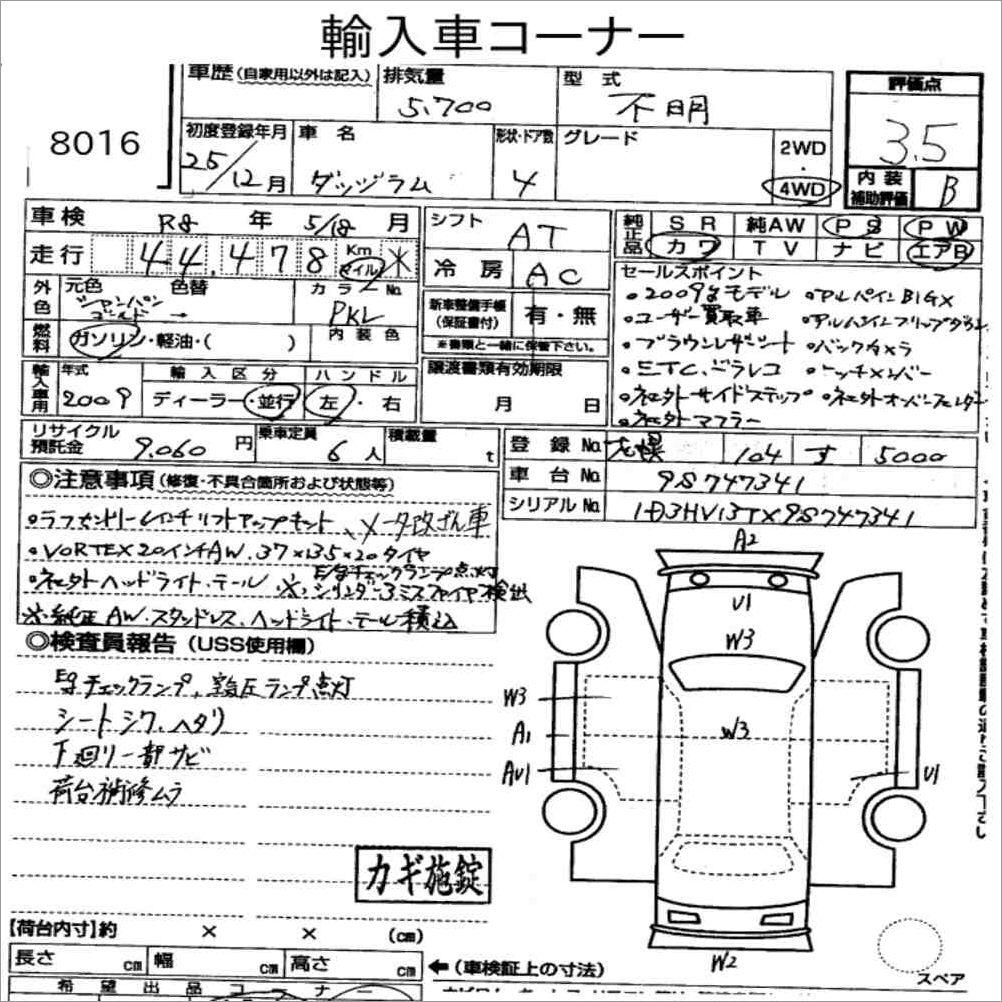 輸入車コーナー
8016
車歴 (自家用以外は記入) 排気量 5,700 型式 不明 評価点 3.5
初度登録年月 25/12月 車名 ダッジラム 形状・ドア数 4 グレード 2WD・4WD
内装補助評価 B
車検 R8年 5/18月 シフト AT 純正品 SR 純AW PS PW
走行 44,478 Km マイル * 冷房 AC カワ TV ナビ エアB
外色 元色 シャンパンゴールド 色替 → カラーNo. PKL 内装色
新車整備手帳(保証書付) 有・無
※書類と一緒に保管下さい。
燃料 ガソリン・軽油・( )
輸入車用 年式 2009 輸入区分 ディーラー・並行 ハンドル 左・右
譲渡書類有効期限 月 日
セールスポイント
・2009yモデル ・アルパインBIGX
・ユーザー買取車 ・アルパインフリップダウン
・ブラウンレザーシート ・バックカメラ
・ETC、ドラレコ ・ヒッチメンバー
・社外サイドステップ ・社外オーバーフェンダー
・社外マフラー
リサイクル預託金 9,060円 乗車定員 6人 積載量 t
登録No. 104 す 5000
車台No. 9S747341
シリアルNo. 1D3HV13TX9S747341
◎注意事項 (修復・不具合箇所および状態等)
・ラフカントリー リフトアップキット、メータ改ざん車
・VORTEX20インチAW.37×13.5×20タイヤ
・社外ヘッドライト、テール ※Egチェックランプ点灯
・シリンダー3ミスファイヤ検出
※純正AW.スタッドレス、ヘッドライト、テール積込
◎検査員報告 (USS使用欄)
Egチェックランプ、空気圧ランプ点灯
シートシワ、ヘタリ
下廻り一部サビ
荷台補修ムラ
カギ施錠
A2
U1
W3
W3
W3
A1
AU1
U1
W2
スペア
【荷台内寸】約 × × (cm)
長さ cm 幅 cm 高さ cm ←(車検証上の寸法)
希望出品コーナー